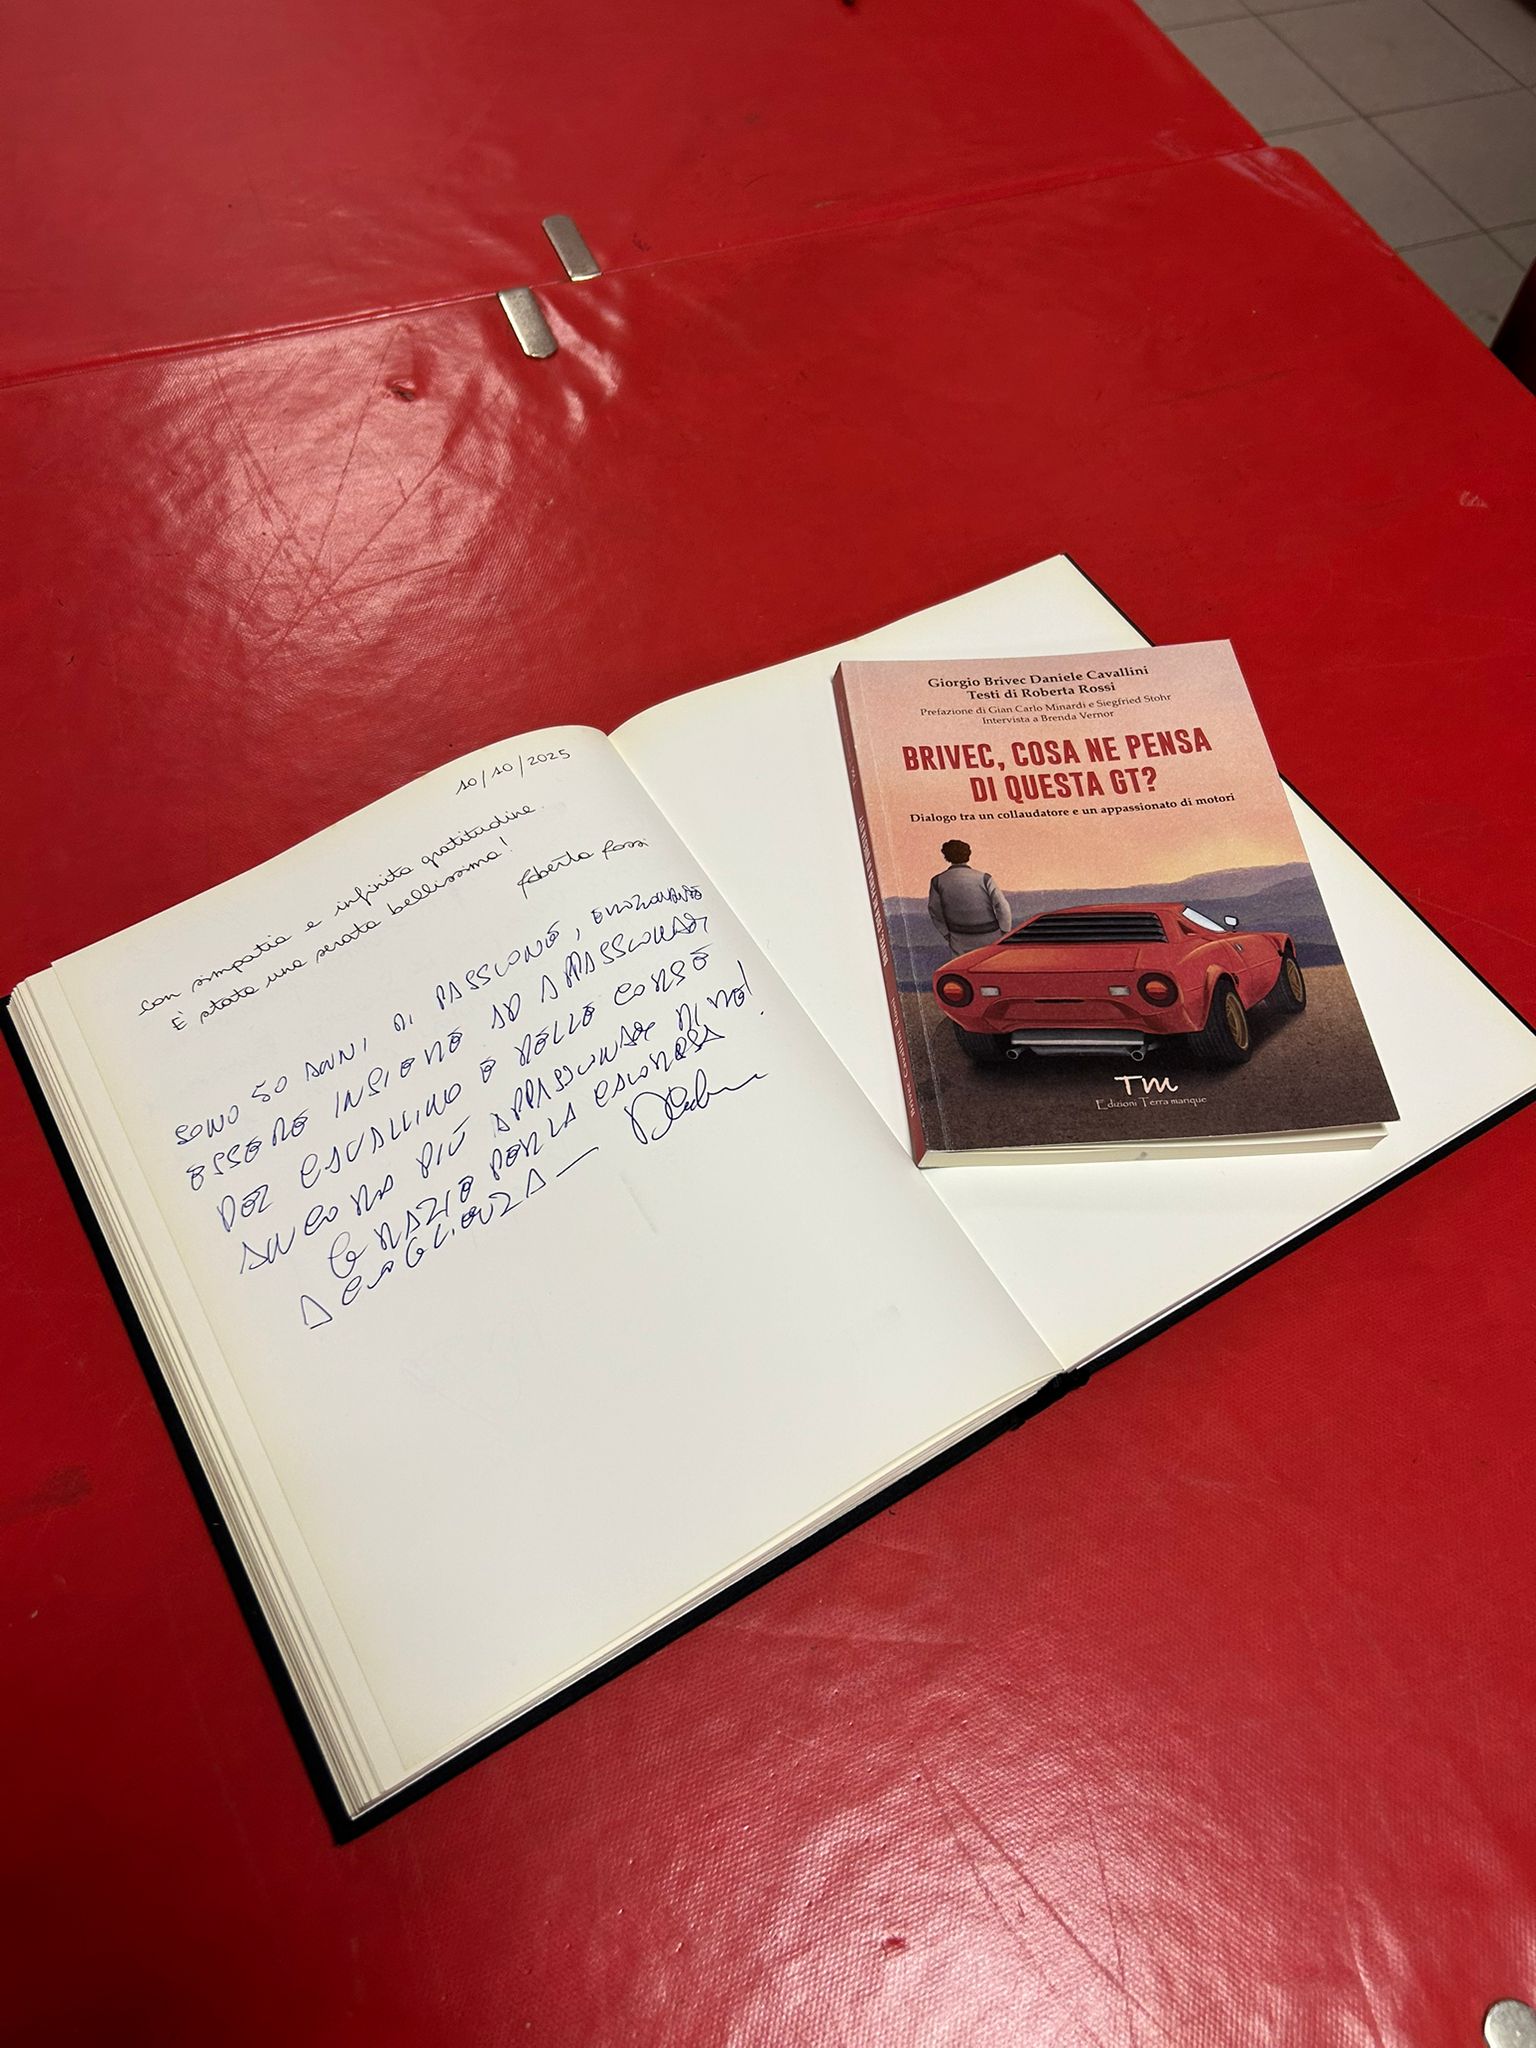 10/10/2025
Con simpatia e infinita gratitudine.
È stata una serata bellissima!
Roberta Rossi
SONO 50 ANNI DI PASSIONE, EMOZIONANTE
ESSERE INSIEME AD APPASSIONATI
DEL CAVALLINO E DELLE CORSE
ANCORA PIÙ APPASSIONATI DI ME!
GRAZIE PER LA CALOROSA
ACCOGLIENZA —
Giorgio Brivec Daniele Cavallini
Testi di Roberta Rossi
Prefazione di Gian Carlo Minardi e Siegfried Stohr
Intervista a Brenda Vernor
BRIVEC, COSA NE PENSA
DI QUESTA GT?
Dialogo tra un collaudatore e un appassionato di motori
TM
Edizioni Terra marique